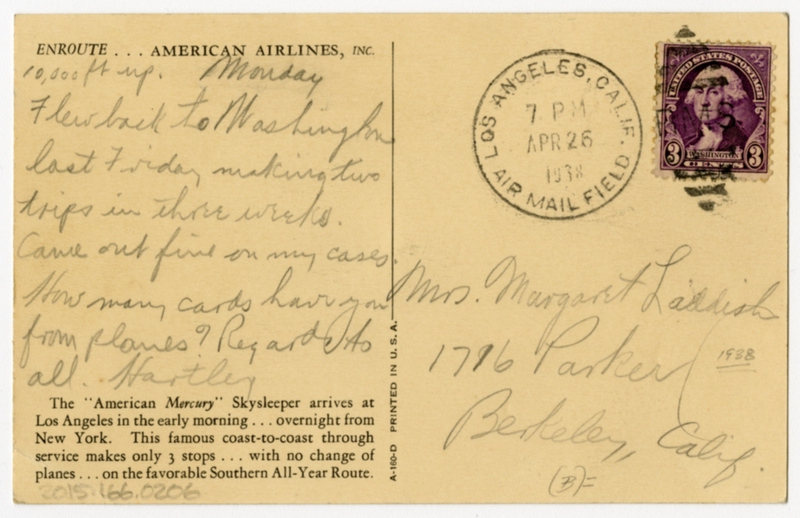 ENROUTE . . . AMERICAN AIRLINES, INC.
10,000 ft up. Monday
Flew back to Washington
last Friday making two
trips in three weeks.
Came out fine on my cases.
How many cards have you
from planes? Regards to
all. Hartley
The "American Mercury" Skysleeper arrives at
Los Angeles in the early morning . . . overnight from
New York. This famous coast-to-coast through
service makes only 3 stops . . . with no change of
planes . . . on the favorable Southern All-Year Route.
2015.166.0206
A-160-D PRINTED IN U. S. A.
LOS ANGELES, CALIF.
7 PM
APR 26
1938
AIR MAIL FIELD
UNITED STATES POSTAGE
3 WASHINGTON 3
Mrs. Margaret Laddish
1716 Parker
1938
Berkeley, Calif.
(B)=